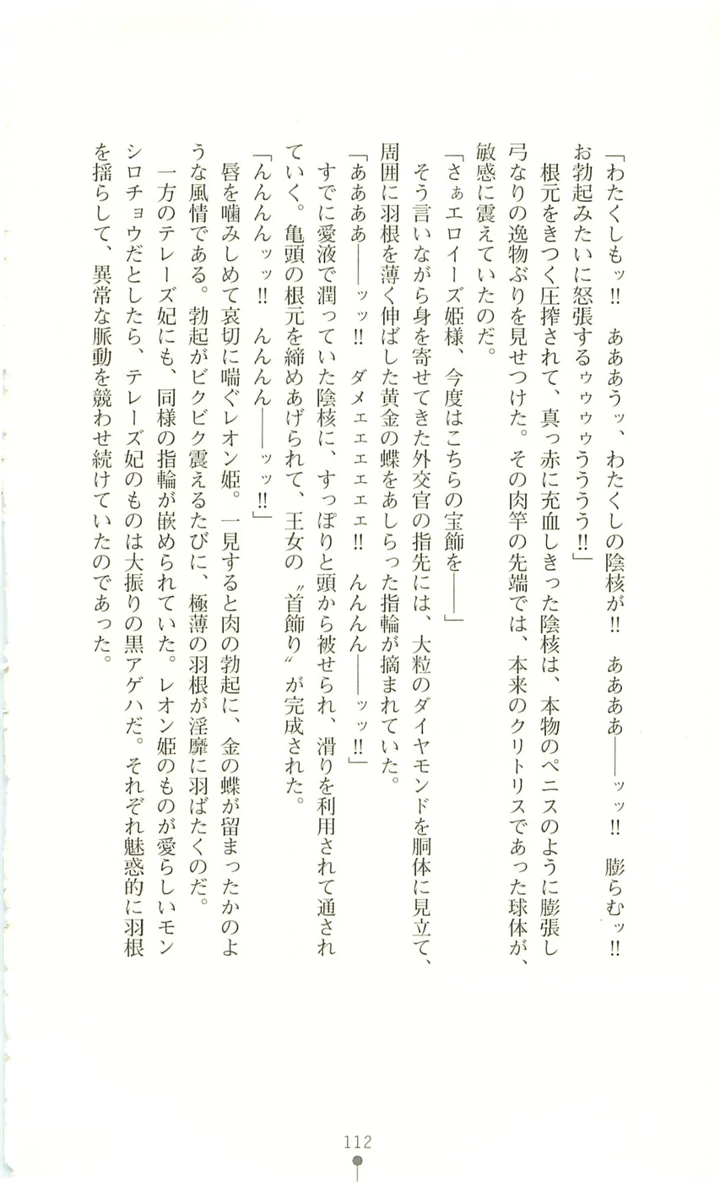 「わたくしもッ!!　あああうッ、わたくしの陰核が!!　ああああ――ッッ!!　膨らむッ!!
お勃起みたいに怒張するゥゥゥゥうううう!!」
　根元をきつく圧搾されて、真っ赤に充血しきった陰核は、本物のペニスのように膨張し
弓なりの逸物ぶりを見せつけた。その肉竿の先端では、本来のクリトリスであった球体が、
敏感に震えていたのだ。
「さぁエロイーズ姫様、今度はこちらの宝飾を――」
　そう言いながら身を寄せてきた外交官の指先には、大粒のダイヤモンドを胴体に見立て、
周囲に羽根を薄く伸ばした黄金の蝶をあしらった指輪が摘まれていた。
「ああああ――ッッ!!　ダメェエエエエェ!!　んんんん――ッッ!!」
　すでに愛液で潤っていた陰核に、すっぽりと頭から被せられ、滑りを利用されて通され
ていく。亀頭の根元を締めあげられて、王女の〝首飾り〟が完成された。
「んんんんッッ!!　んんんん――ッッ!!」
　唇を噛みしめて哀切に喘ぐレオン姫。一見すると肉の勃起に、金の蝶が留まったかのよ
うな風情である。勃起がビクビク震えるたびに、極薄の羽根が淫靡に羽ばたくのだ。
　一方のテレーズ妃にも、同様の指輪が嵌められていた。レオン姫のものが愛らしいモン
シロチョウだとしたら、テレーズ妃のものは大振りの黒アゲハだ。それぞれ魅惑的に羽根
を揺らして、異常な脈動を競わせ続けていたのであった。
112